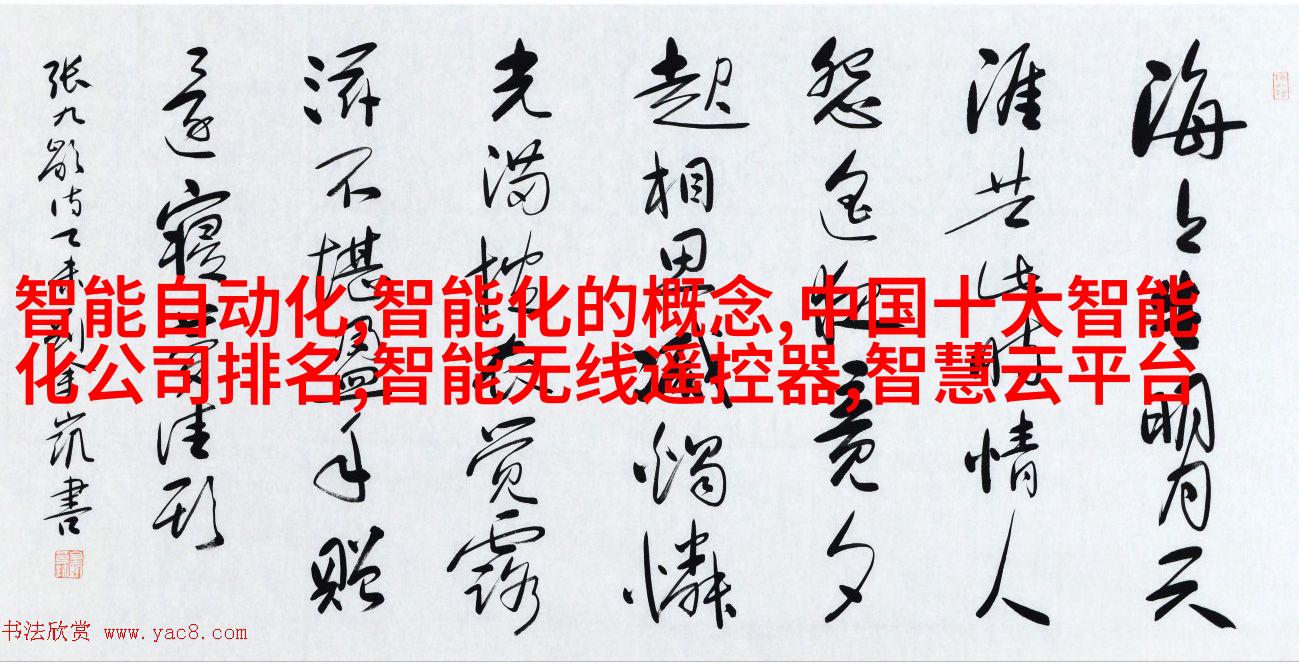 海上生明月天
涯共此时情人
怨遥夜竟夕
起相思灭烛怜
光满披衣觉露
滋不堪盈手赠
还寝梦佳期
张九龄诗乙未刘凯书
智能自动化,智能化的概念,中国十大智能
化公司排名,智能无线遥控器,智慧云平台
书法欣赏 www.yac8.com